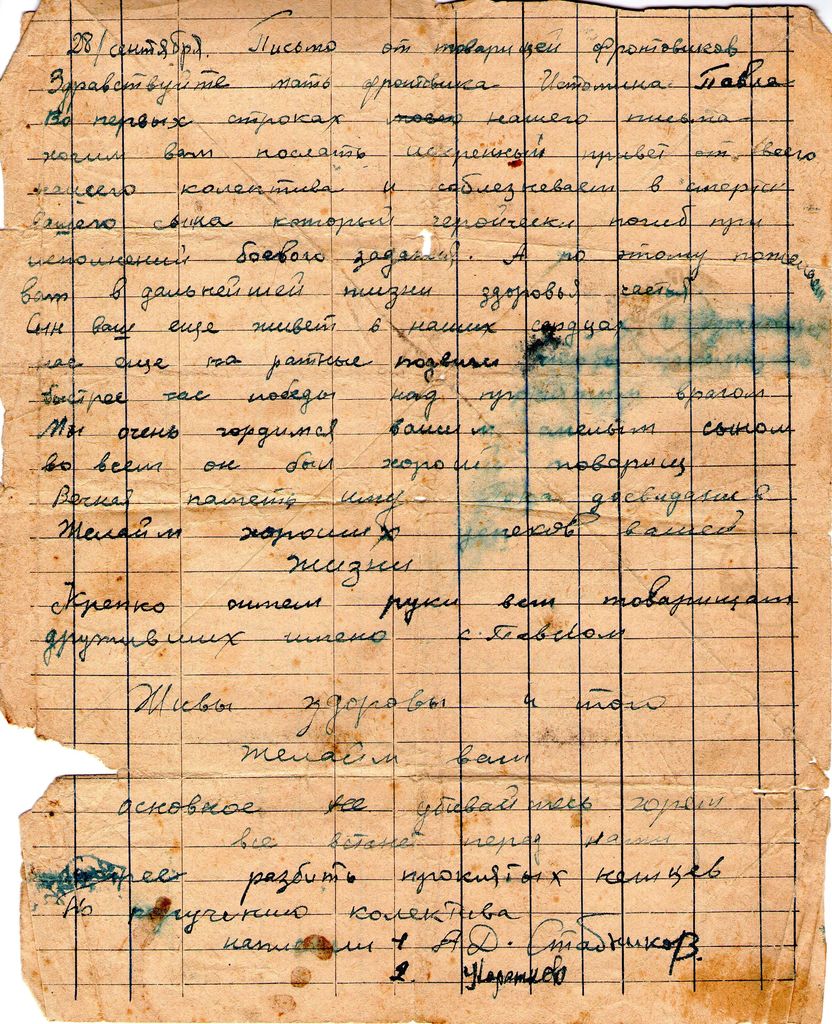 28/сентября. Письмо от товарищей фронтовиков
Здравствуйте мать фронтовика Истомина Павла
Во первых строках нашего письма
хотим вам послать искренный привет от всего
нашего колектива и соблезневаем в смерти
вашего сына который геройчески погиб при
исполнений боевого задания. А по этому пожелаем
вам в дальнейшей жизни здоровья частья
Сын ваш еще живет в наших сердцах и
нас еще на ратные подвиги
быстрее час победы над проклятым врагом
Мы очень гордимся вашим смелым сыном
во всем он был хороший товарищ
Вечная паметь ему Пока досвидания
Желайм хороших успехов вашей
жизни
Крепко жмем руки вам товарищам
друживших с Павлом
Живы здоровы и того
желайм вам
основное не убивайтесь горем
все встанет перед нами
разбить проклятых немцев
По поручению колектива
написали 1 А.Д. Стабников.
2.